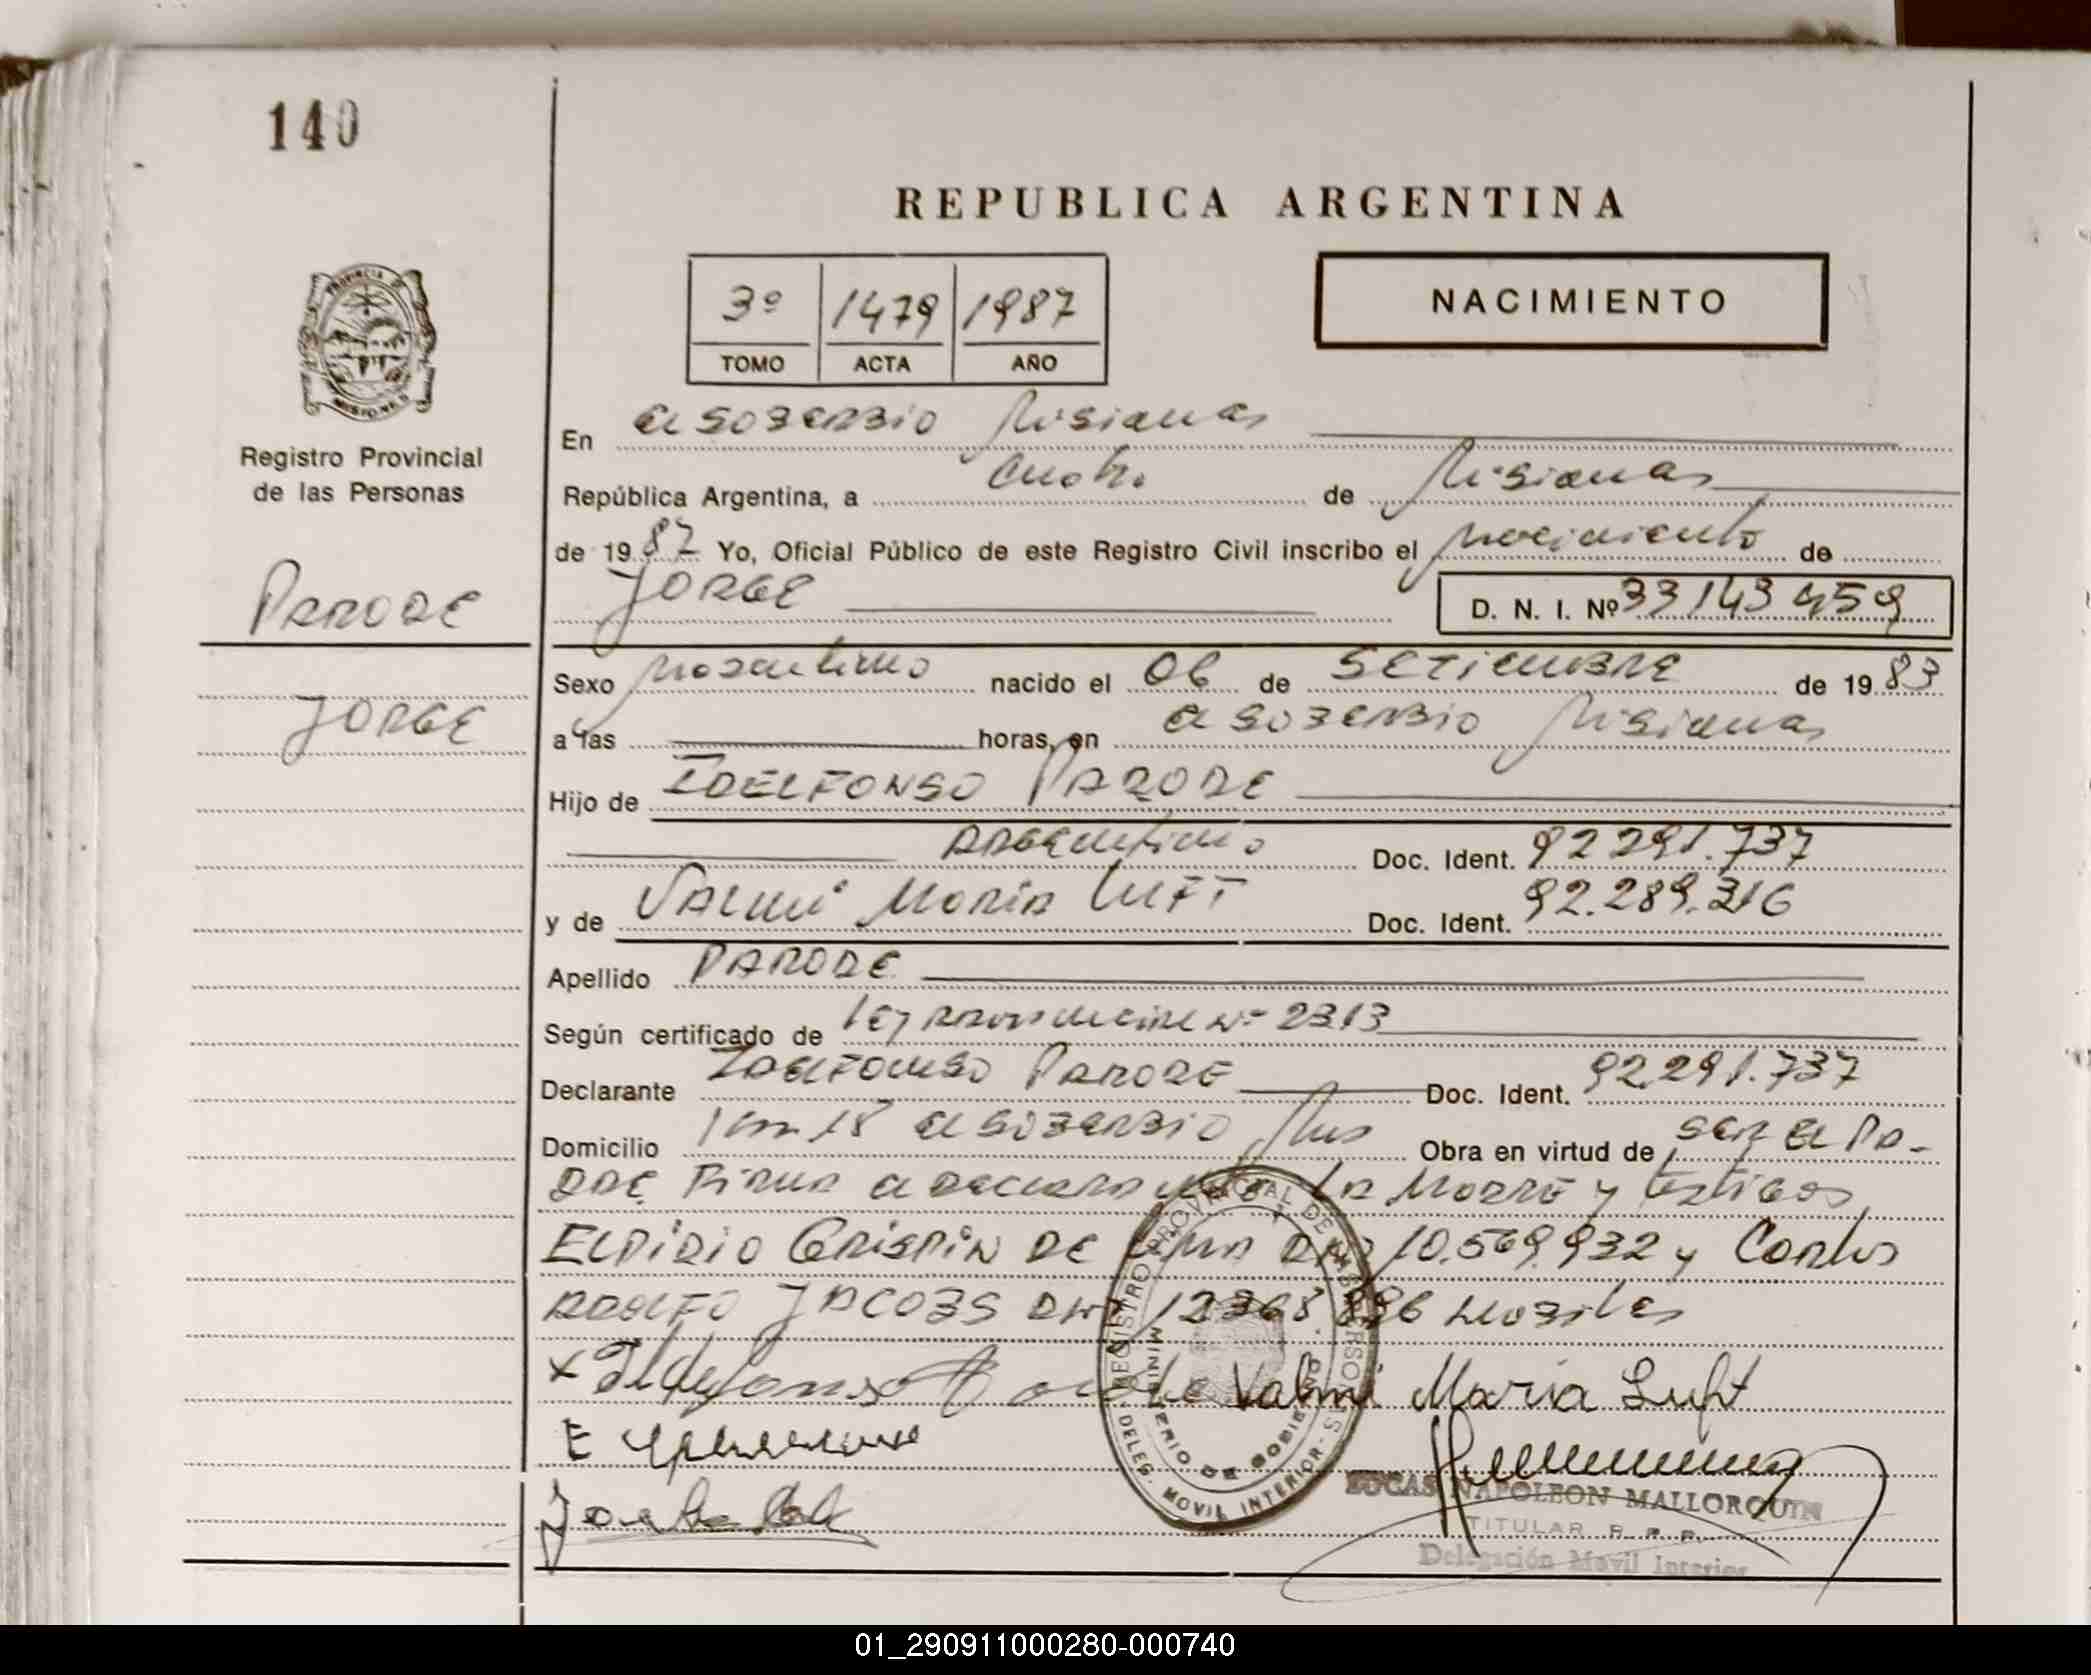 140
REPUBLICA ARGENTINA
3º 1479 1987
TOMO ACTA AÑO
NACIMIENTO
PROVINCIA DE
MISIONES
Registro Provincial
de las Personas
En El SOBERBIO Misiones
República Argentina, a cuatro de Misiones
de 1987 Yo, Oficial Público de este Registro Civil inscribo el nacimiento de
JORGE D. N. I. Nº 33143459
PARODE
JORGE
Sexo masculino nacido el 06 de SETIEMBRE de 1983
a las horas, en El SOBERBIO Misiones
Hijo de IDELFONSO PARODE
ARGENTINO Doc. Ident. 92 291.737
y de VALMI MARIA LUFT Doc. Ident. 92.289.316
Apellido PARODE
Según certificado de ley Nº 2313
Declarante IDELFONSO PARODE Doc. Ident. 92.291.737
Domicilio Km 18 El SOBERBIO Mnes Obra en virtud de SER El PA-
DRE Firma el declarante La Madre y testigos
ELPIDIO CRISPIN DE LIMA DNI 10.569.932 y Carlos
ADOLFO JACOBS DNI 12368896 Mosiles
x Ildefonso Parode Valmi Maria Luft
REGISTRO PROVINCIAL DE LAS PERSONAS
MINISTERIO DE GOBIERNO
DELEG. MOVIL INTERIOR
LUCAS NAPOLEON MALLORQUIN
TITULAR R. P. P.
Delegación Movil Interior
01_290911000280-000740